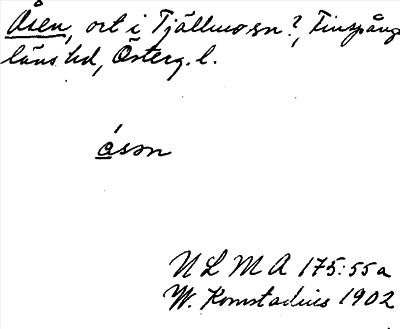 Åsen, ort i Tjällmo sn?, Finspånga
läns hd, Österg. l.
åsən
NLMA 175:55a
W. Komstadius 1902